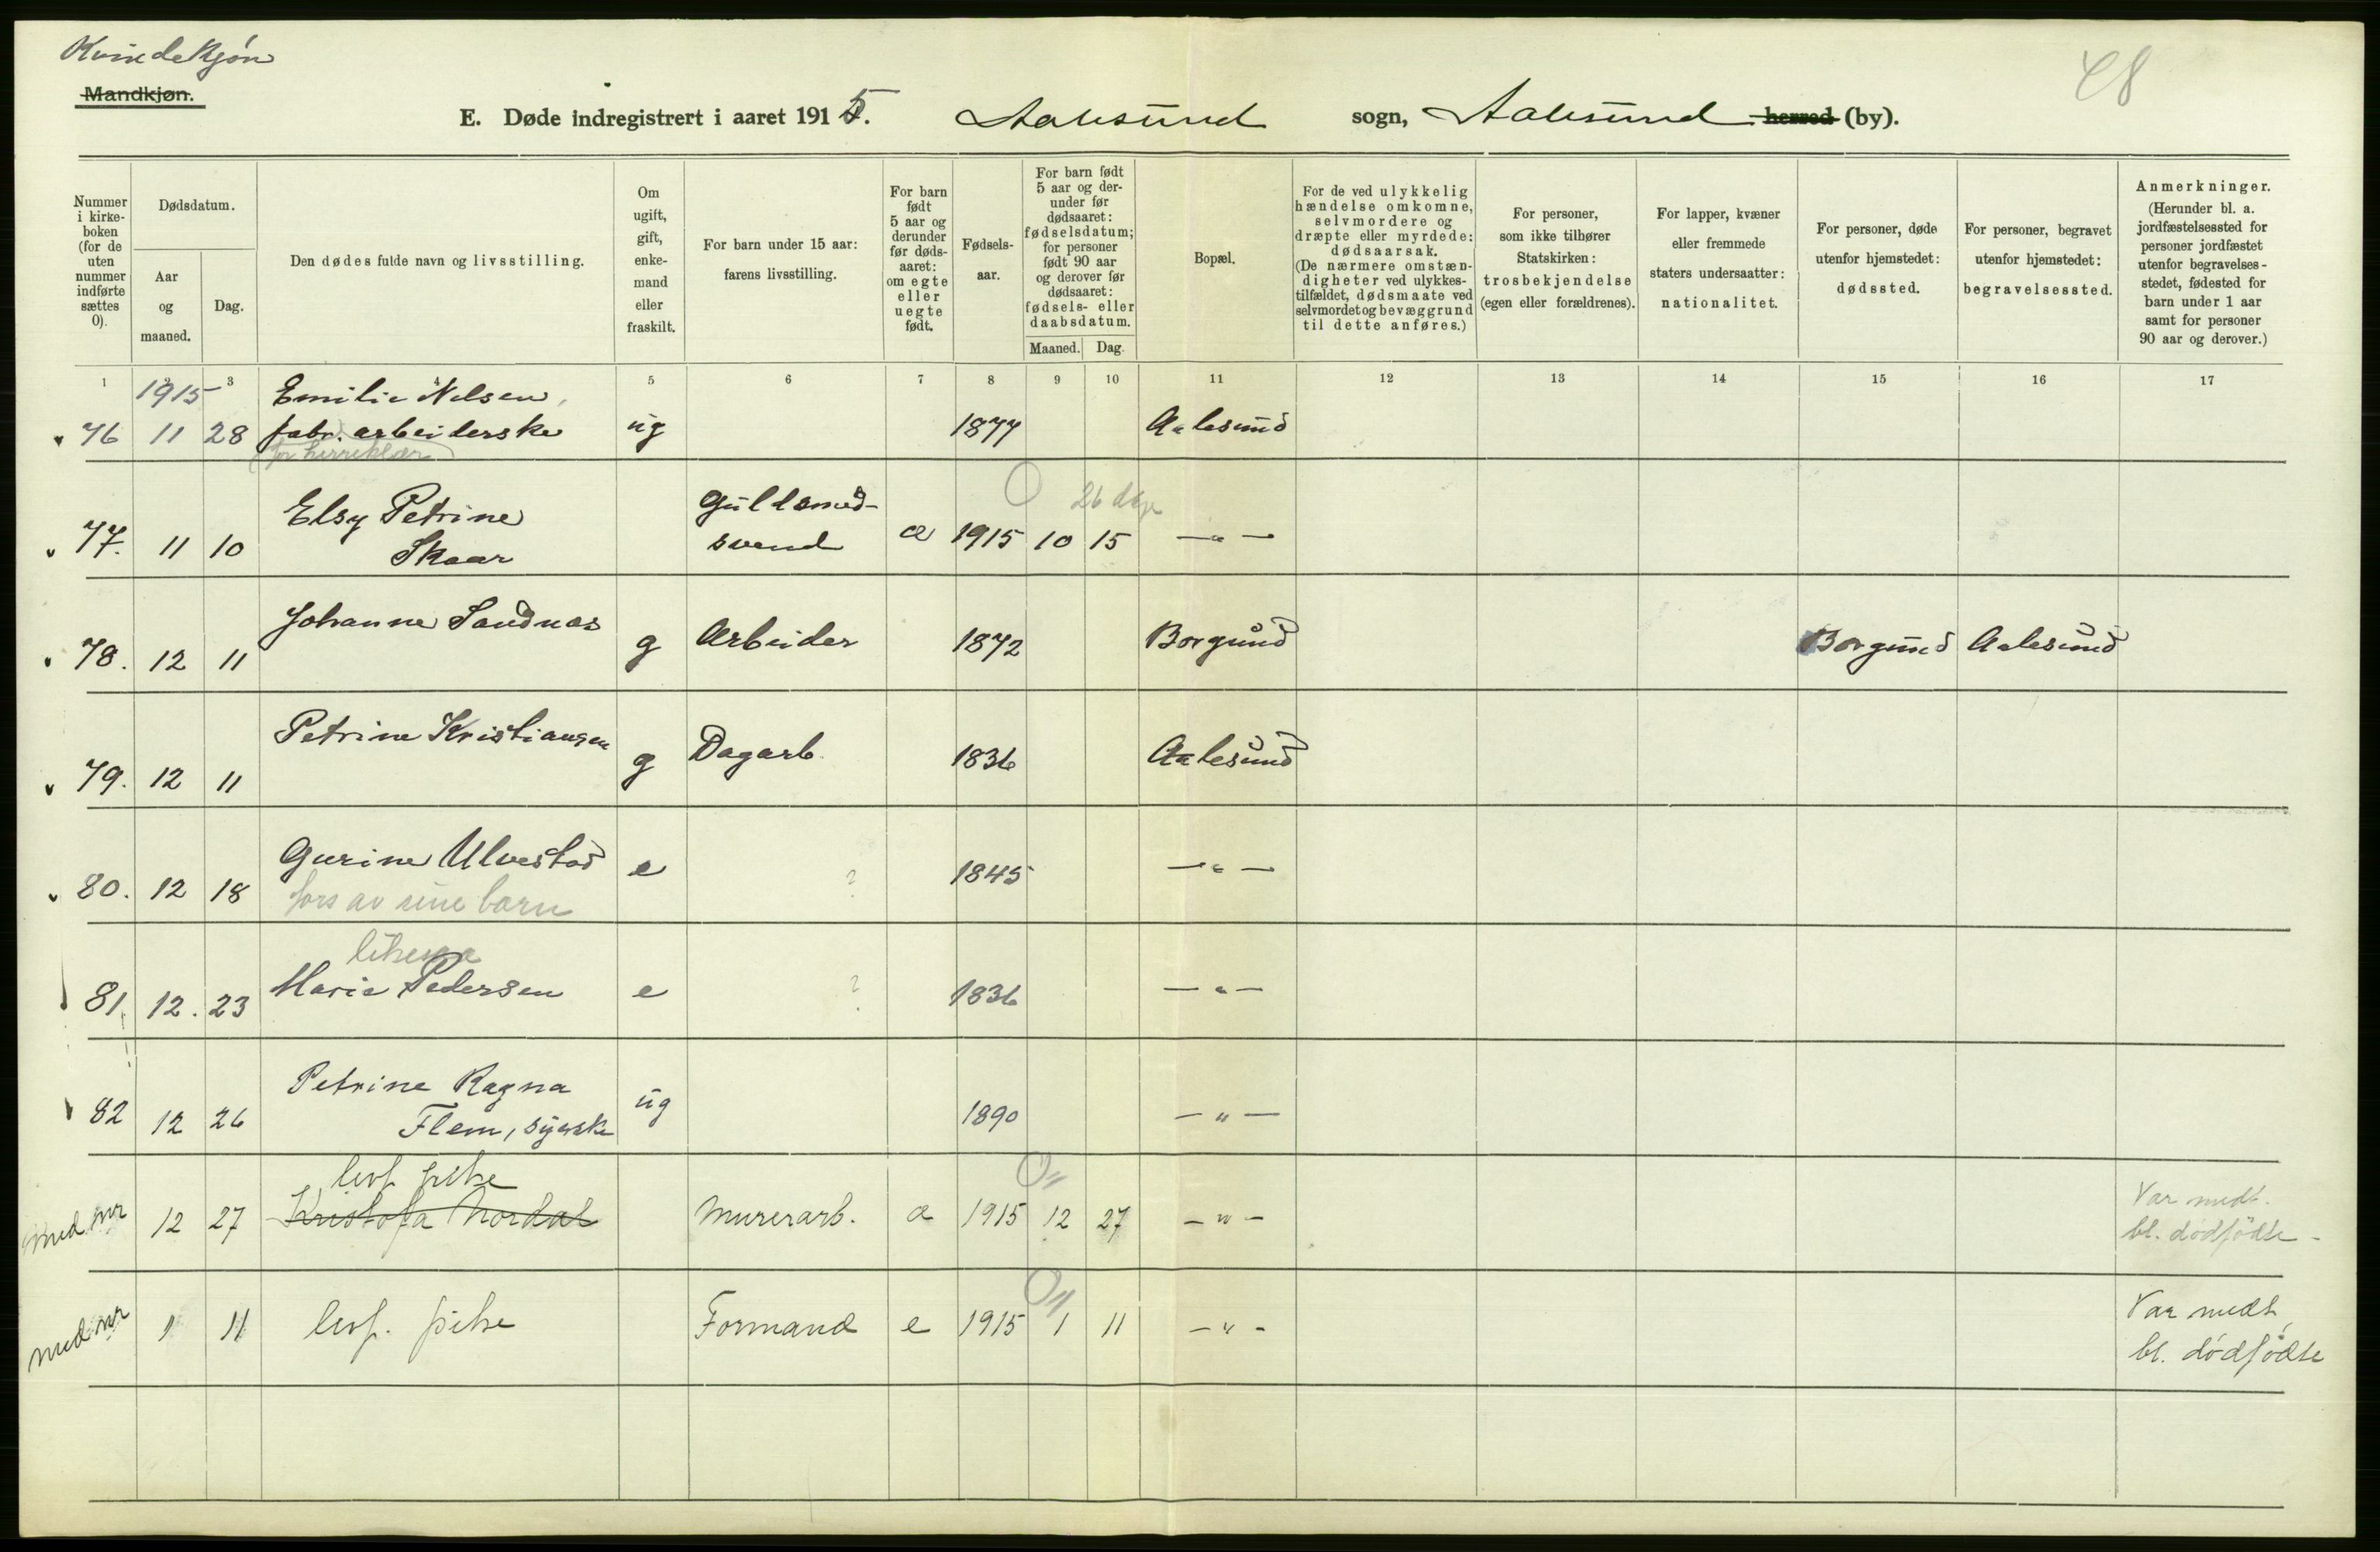 Kvindekjøn
Mandkjøn.
48
E. Døde indregistrert i aaret 1915. Aalesund sogn, Aalesund herred (by).
Nummer i kirkeboken (for de uten nummer indførte sættes 0).
Dødsdatum.
Aar og maaned.
Dag.
Den dødes fulde navn og livsstilling.
Om ugift, gift, enkemand eller fraskilt.
For barn under 15 aar: farens livsstilling.
For barn født 5 aar og derunder før dødsaaret: om egte eller uegte født.
Fødselsaar.
For barn født 5 aar og derunder før dødsaaret: fødselsdatum; for personer født 90 aar og derover før dødsaaret: fødsels- eller daabsdatum.
Maaned.
Dag.
Bopæl.
For de ved ulykkelig hændelse omkomne, selvmordere og dræpte eller myrdede: dødsaarsak. (De nærmere omstændigheter ved ulykkestilfældet, dødsmaate ved selvmordet og bevæggrund til dette anføres.)
For personer, som ikke tilhører Statskirken: trosbekjendelse (egen eller forældrenes).
For lapper, kvæner eller fremmede staters undersaatter: nationalitet.
For personer, døde utenfor hjemstedet: dødssted.
For personer, begravet utenfor hjemstedet: begravelsessted.
Anmerkninger. (Herunder bl. a. jordfæstelsessted for personer jordfæstet utenfor begravelsesstedet, fødested for barn under 1 aar samt for personer 90 aar og derover.)
1 2 3 4 5 6 7 8 9 10 11 12 13 14 15 16 17
1915 Emilie Nelsen,
76 11 28 fabr. arbeiderske ug 1877 Aalesund
(for herreklær)
Elsy Petrine Guldsmed- 26 dge
77. 11 10 Skaar svend æ 1915 10 15 — " —
78. 12 11 Johanne Sandnæs g Arbeider 1872 Borgund Borgund Aalesund
79. 12 11 Petrine Kristiansen g Dagarb. 1836 Aalesund
80. 12 18 Gurine Ulvestad e ? 1845 — " —
fors av sine barn
likesaa
81. 12. 23 Marie Pedersen e ? 1836 — " —
Petrine Ragna
82 12 26 Flem, syerske ug 1890 — " —
levf. pike
med nr 12 27 Kristofa Nordal Murerarb. æ 1915 12 27 — " — Var medt.
bl. dødfødte -
med nr 1 11 levf. pike Formand e 1915 1 11 — " — Var medt.
bl. dødfødte